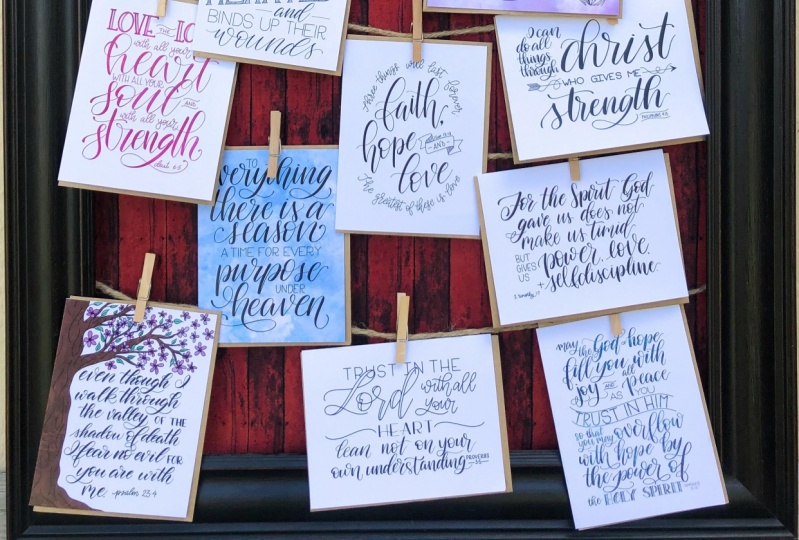 LOVE THE LO
with all your
heart
WITH ALL YOUR
soul AND
with all your
strength
deut. 6:5
and
BINDS UP THEIR
wounds
three things will last forever
faith,
hope
AND
love
The greatest of these is love
I can
do all
things
through
christ
WHO GIVES ME
strength
TO
everything
there is a
season
A TIME FOR EVERY
purpose
UNDER
heaven
For the Spirit God
gave us does not
make us timid
BUT
GIVES
US
power, love,
+ self-discipline
2 Timothy
even though I
walk through
the valley OF THE
shadow of death
I fear no evil FOR
you are with
me. psalm 23:4
TRUST IN THE
Lord with all
your
HEART
lean not on your
own understanding PROVERBS
3:5
may the God of hope
fill you with
all
joy AND peace
AS YOU
TRUST IN HIM
so that
you may overflow
with hope by
the power of
the HOLY SPIRIT